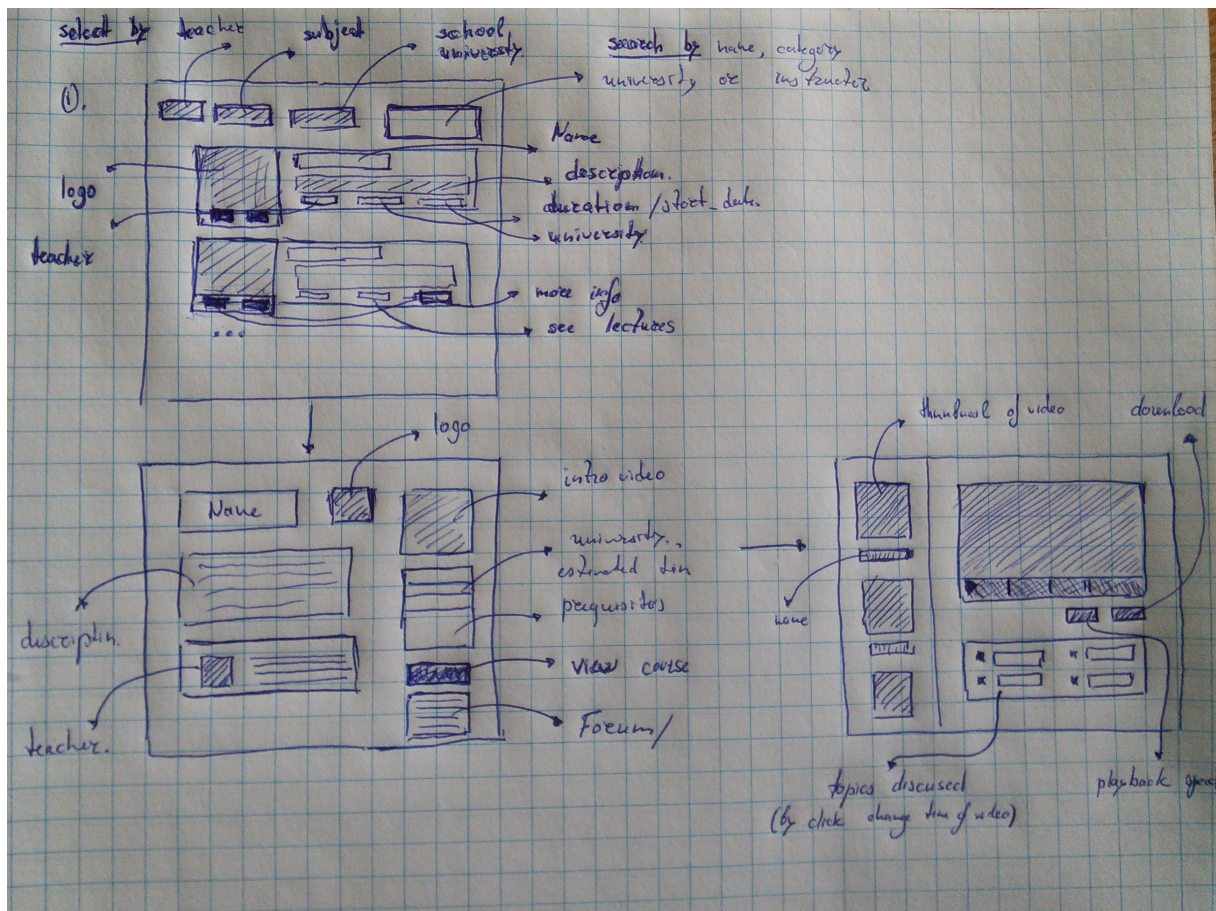 select by teacher subject school
university.
search by name, category
university or instructer
①.
Name
description.
logo
duration /start_date.
university
teacher
more info
see lectures
...
logo
Name
intro video
university.
estimated tim
prequisites
description.
view course
teacher.
Forum/
thumbnail of video
download
name
topics discused
(by click change time of video)
playback